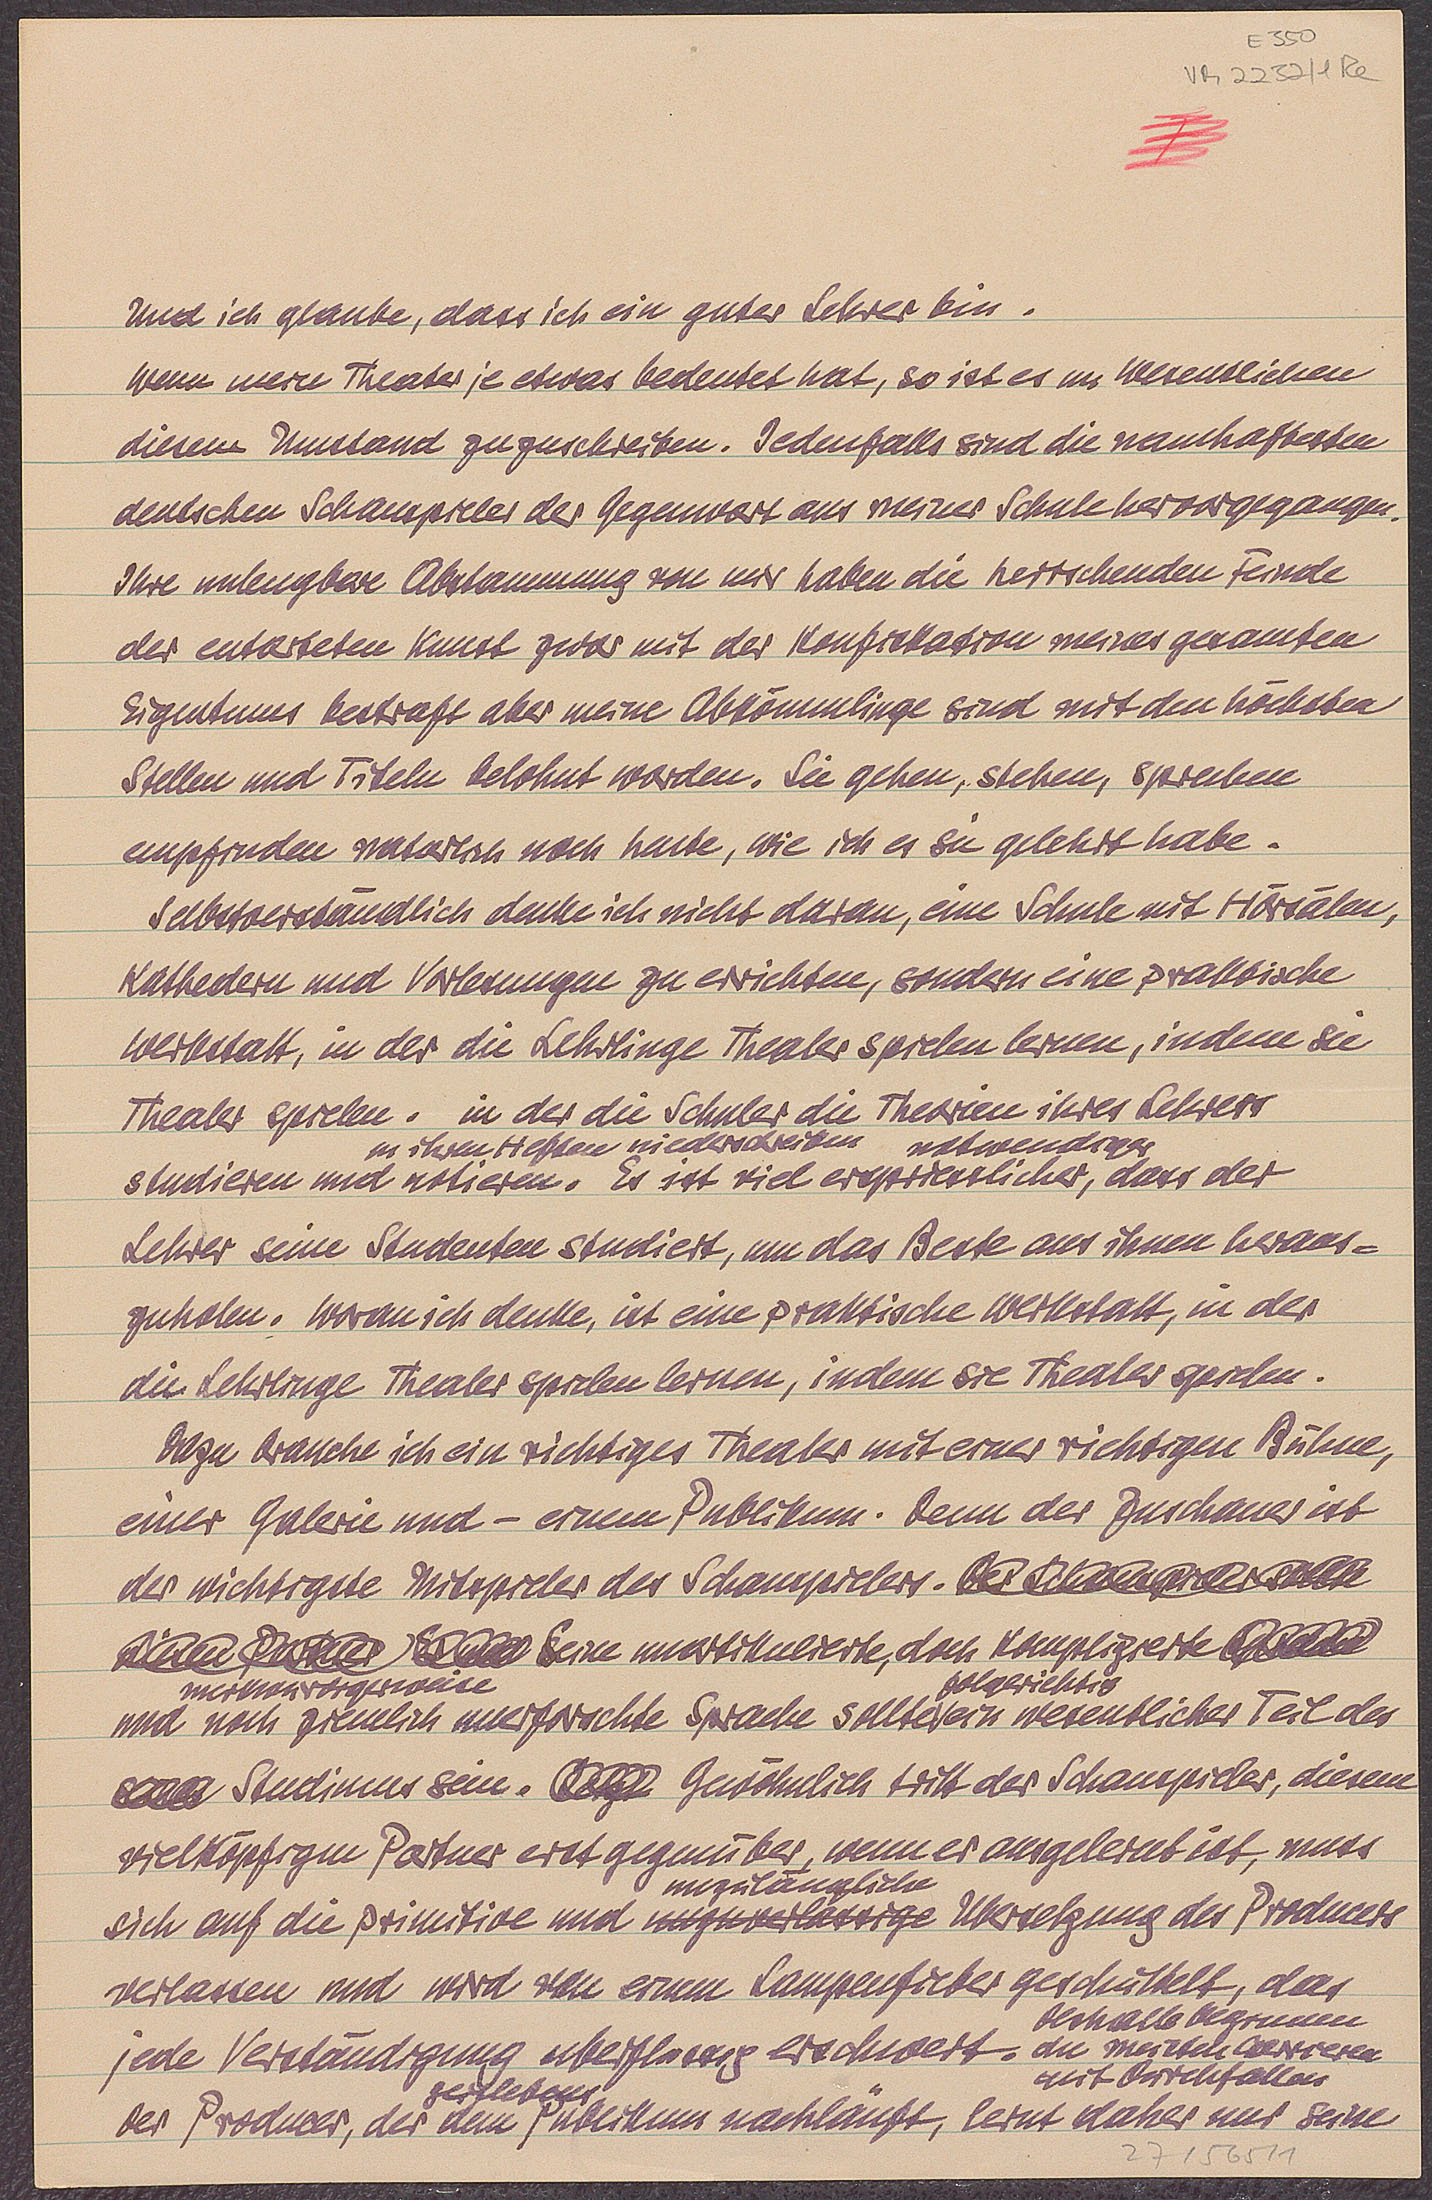 E 350
VM 2232/1 Re
Und ich glaube, dass ich ein guter Lehrer bin.
Wenn mein Theater je etwas bedeutet hat, so ist es im Wesentlichen
diesem Umstand zuzuschreiben. Jedenfalls sind die namhaftesten
deutschen Schauspieler der Gegenwart aus meiner Schule hervorgegangen.
Ihre unleugbare Abstammung von mir haben die herrschenden Feinde
der entarteten Kunst zwar mit der Konfiskation meines gesamten
Eigentums bestraft aber meine Abkömmlinge sind mit den höchsten
Stellen und Titeln belohnt worden. Sie gehen, stehen, sprechen
empfinden naturlich noch heute, wie ich es sie gelehrt habe.
Selbstverständlich denke ich nicht daran, eine Schule mit Hörsälen,
Kathedern und Vorlesungen zu errichten, sondern eine praktische
Werkstatt, in der die Lehrlinge Theater spielen lernen, indem sie
Theater spielen. in der die Schuler die Theorien ihres Lehrers
in ihren Heften niederschreiben notwendiger
studieren und notieren. Es ist viel erspriesslicher, dass der
Lehrer seine Studenten studiert, um das Beste aus ihnen heraus=
zuholen. Woran ich denke, ist eine praktische Werkstatt, in der
die Lehrlinge Theater spielen lernen, indem sie Theater spielen.
Dazu brauche ich ein richtiges Theater mit einer richtigen Bühne,
einer Galerie und – einem Publikum. Denn der Zuschauer ist
der wichtigste Mitspieler des Schauspielers. Der Schauspieler sollte
seinen Partner Seine unartikulierte, doch komplizierte
merkwürdigerweise folgerichtig
und noch ziemlich unerforschte Sprache sollte ein wesentlicher Teil des
Studiums sein. Gewöhnlich tritt der Schauspieler, diesem
vielköpfigen Partner erst gegenüber, wenn er ausgelernt ist, muss
unzulängliche
sich auf die primitive und unzuverlässige Ubersetzung des Producers
verlassen und wird von einem Lampenfieber geschüttelt, das
jede Verständigung uberflussig erschwert. Deshalb beginnen
die meisten Carrieren
mit Durchfallen
zeitlebens
Der Producer, der dem Publikum nachläuft, lernt daher nur seine
27/565/1